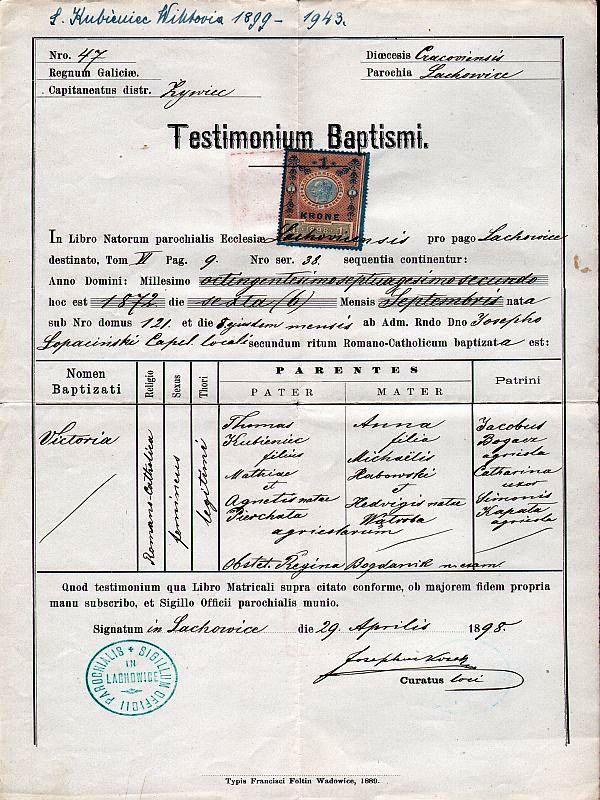 S. Kubieniec Wiktoria 1899 - 1943.
Nro. 47
Regnum Galiciæ.
Capitaneatus distr. Zywiec
Diœcesis Cracoviensis
Parochia Lachowice
Testimonium Baptismi.
1
KRONE
1898
In Libro Natorum parochialis Ecclesiæ Lachoviensis pro pago Lachowice
destinato, Tom VI Pag. 9. Nro ser. 38. sequentia continentur:
Anno Domini: Millesimo octingentesimo septuagesimo secundo
hoc est 1872 die sexta (6) Mensis Septembris nata
sub Nro domus 121. et die ejusdem mensis ab Adm. Rndo Dno Josepho
Łopaciński Capel. locali secundum ritum Romano-Catholicum baptizata est:
Nomen Baptizati
Religio
Sexus
Thori
PARENTES
PATER
MATER
Patrini
Victoria
Romano-Catholica
femineus
legitimi
Thomas
Kubieniec
filius
Mathiae
et
Agnetis natae
Pierchata
agricolarum
Anna
filia
Michaëlis
Harbowski
et
Hedvigis natae
Wątroba
Jacobus
Bogacz
agricola
Catharina
uxor
Simonis
Kapata
agricola
Obstet. Regina Bogdanik
Quod testimonium qua Libro Matricali supra citato conforme, ob majorem fidem propria
manu subscribo, et Sigillo Officii parochialis munio.
Signatum in Lachowice die 29 Aprilis 1898.
Curatus loci
SIGILLUM OFFICII PAROCHIALIS
IN
LACHOWICE
Typis Francisci Foltin Wadowice, 1889.